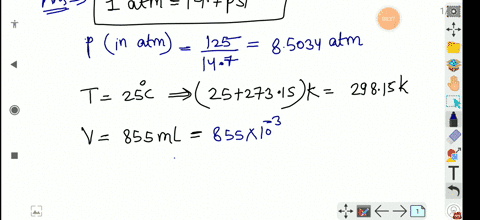 1 atm = 14.7 psi
P (in atm) = 125/14.7 = 8.5034 atm
T = 25°C ⇒ (25+273.15)K = 298.15K
V = 855 mL = 855×10⁻³